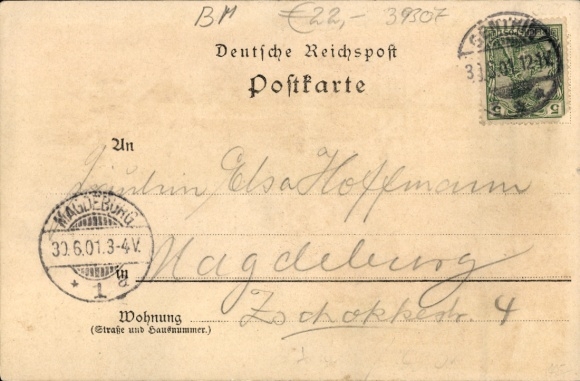 BM €22,- 39307
Deutsche Reichspost
Postkarte
5 5
An
Fräulein Elsa Hoffmann
MAGDEBURG
30.6.01.3-4V.
* 1
in Magdeburg
Wohnung Zschokkestr. 4
(Straße und Hausnummer.)